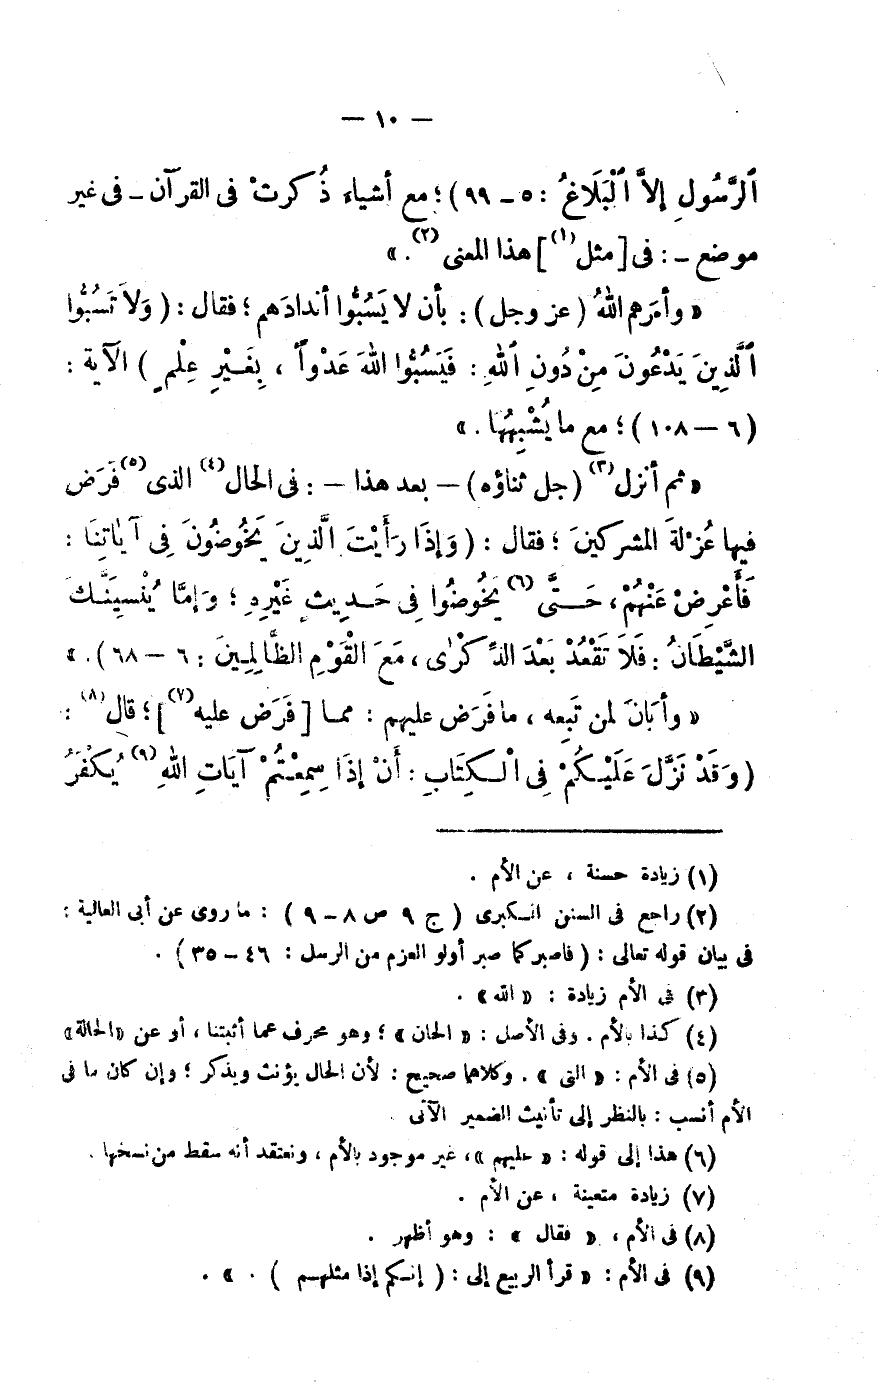 — ١٠ —
ٱلرَّسُولِ إِلاَّ ٱلْبَلَاغُ : ٥ – ٩٩ ) ؛ مع أشياء ذُكرتْ فى القرآن – فى غير
موضع – : فى [ مثل (١) ] هذا المعنى (٢) . »
« وأمَرهم اللهُ ( عز وجل ) : بأن لا يَسُبُّوا أندادَهم ؛ فقال : ( وَلاَ تَسُبُّوا
ٱلَّذِينَ يَدْعُونَ مِنْ دُونِ ٱللهِ : فَيَسُبُّوا اللهَ عَدْواً ، بِغَيْرِ عِلْمٍ ) الآية :
( ٦ – ١٠٨ ) ؛ مع ما يُشْبِهُهَا . »
« ثم أنزل (٣) ( جل ثناؤه ) – بعد هذا – : فى الحال (٤) الذى (٥) فَرَض
فيها عُزْلةَ المشركينَ ؛ فقال : ( وَإِذَا رَأَيْتَ الَّذِينَ يَخُوضُونَ فِى آيَاتِنَا :
فَأَعْرِضْ عَنْهُمْ ، حَتَّى (٦) يَخُوضُوا فِى حَدِيثٍ غَيْرِهِ ؛ وَإِمَّا يُنْسِيَنَّكَ
الشَّيْطَانُ : فَلاَ تَقْعُدْ بَعْدَ الذِّكْرَى ، مَعَ الْقَوْمِ الظَّالِمِينَ : ٦ – ٦٨ ) . »
« وأبَانَ لمن تَبِعه ، ما فَرَض عليهم : مما [ فَرَض عليه (٧) ] ؛ قال (٨) :
( وَقَدْ نَزَّلَ عَلَيْكُمْ فِى الْكِتَابِ : أَنْ إِذَا سَمِعْتُمْ آيَاتِ اللهِ (٩) يُكْفَرُ
(١) زيادة حسنة ، عن الأم .
(٢) راجع فى السنن الكبرى ( ج ٩ ص ٨ – ٩ ) : ما روى عن أبى العالية :
فى بيان قوله تعالى : ( فاصبر كما صبر أولو العزم من الرسل : ٤٦ – ٣٥ ) .
(٣) فى الأم زيادة : « الله » .
(٤) كذا بالأم . وفى الأصل : « الحان » ؛ وهو محرف عما أثبتنا ، أو عن « الحالة »
(٥) فى الأم : « التى » . وكلاهما صحيح : لأن الحال يؤنث ويذكر ؛ وإن كان ما فى
الأم أنسب : بالنظر إلى تأنيث الضمير الآتى .
(٦) هذا إلى قوله : « عليهم » ، غير موجود بالأم ، ونعتقد أنه سقط من نسخها .
(٧) زيادة متعينة ، عن الأم .
(٨) فى الأم ، « فقال » : وهو أظهر .
(٩) فى الأم : « قرأ الربيع إلى : ( إنكم إذا مثلهم ) . » .